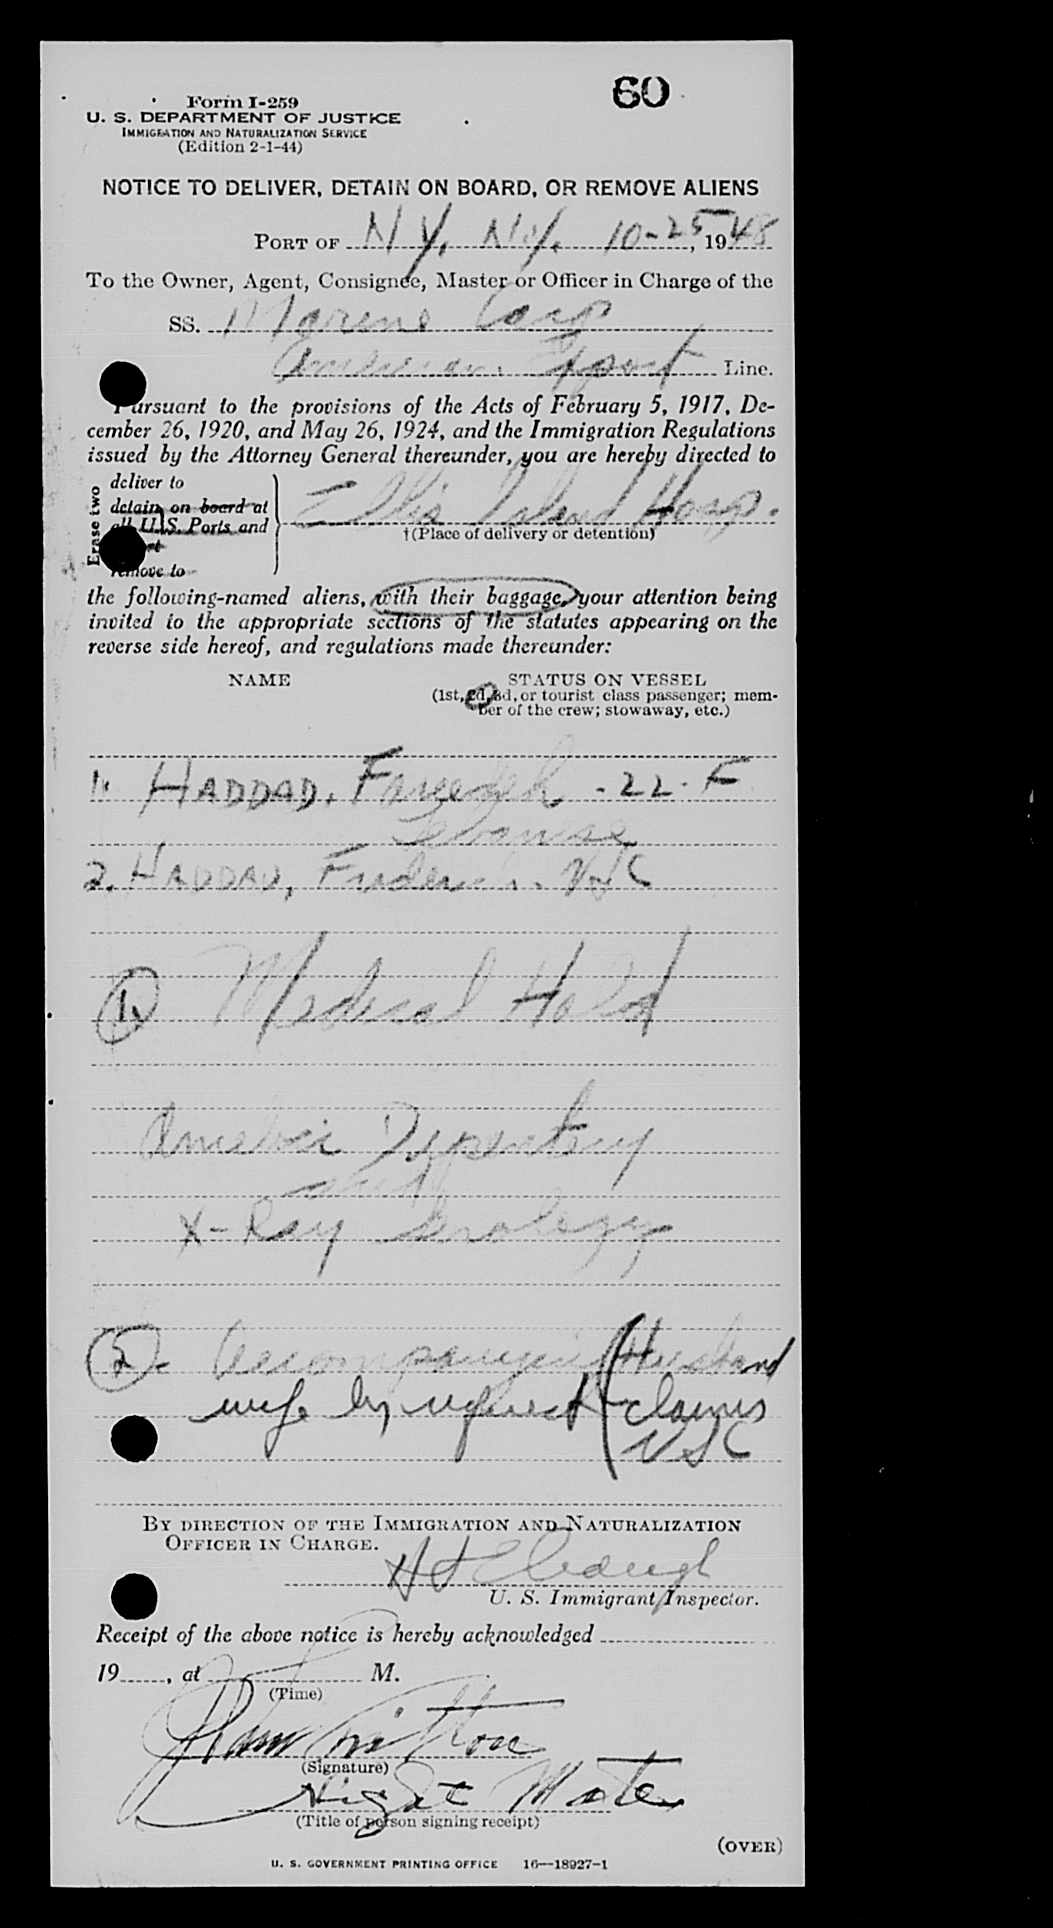 60
Form I-259
U. S. DEPARTMENT OF JUSTICE
IMMIGRATION AND NATURALIZATION SERVICE
(Edition 2-1-44)
NOTICE TO DELIVER, DETAIN ON BOARD, OR REMOVE ALIENS
PORT OF N.Y. N.Y. 10-25, 1948
To the Owner, Agent, Consignee, Master or Officer in Charge of the
SS. Marine Carp
American Export Line.
Pursuant to the provisions of the Acts of February 5, 1917, De-
cember 26, 1920, and May 26, 1924, and the Immigration Regulations
issued by the Attorney General thereunder, you are hereby directed to
Erase two
deliver to
detain on board at
all U.S. Ports and
remove to
Ellis Island Hosp.
†(Place of delivery or detention)
the following-named aliens, with their baggage, your attention being
invited to the appropriate sections of the statutes appearing on the
reverse side hereof, and regulations made thereunder:
NAME STATUS ON VESSEL
(1st, 2d, 3d, or tourist class passenger; mem-
ber of the crew; stowaway, etc.)
1. HADDAD, Fareedeh - 22 - F
2. HADDAD, Frederick. USC
1. Medical Hold
Amebic Dysentery
X-Ray Serology
2. Accompanying
wife by request
Husband
claims
USC
BY DIRECTION OF THE IMMIGRATION AND NATURALIZATION
OFFICER IN CHARGE.
U. S. Immigrant Inspector.
Receipt of the above notice is hereby acknowledged
19 , at M.
(Time)
(Signature)
Night Mate
(Title of person signing receipt)
(OVER)
U. S. GOVERNMENT PRINTING OFFICE 16—18927-1